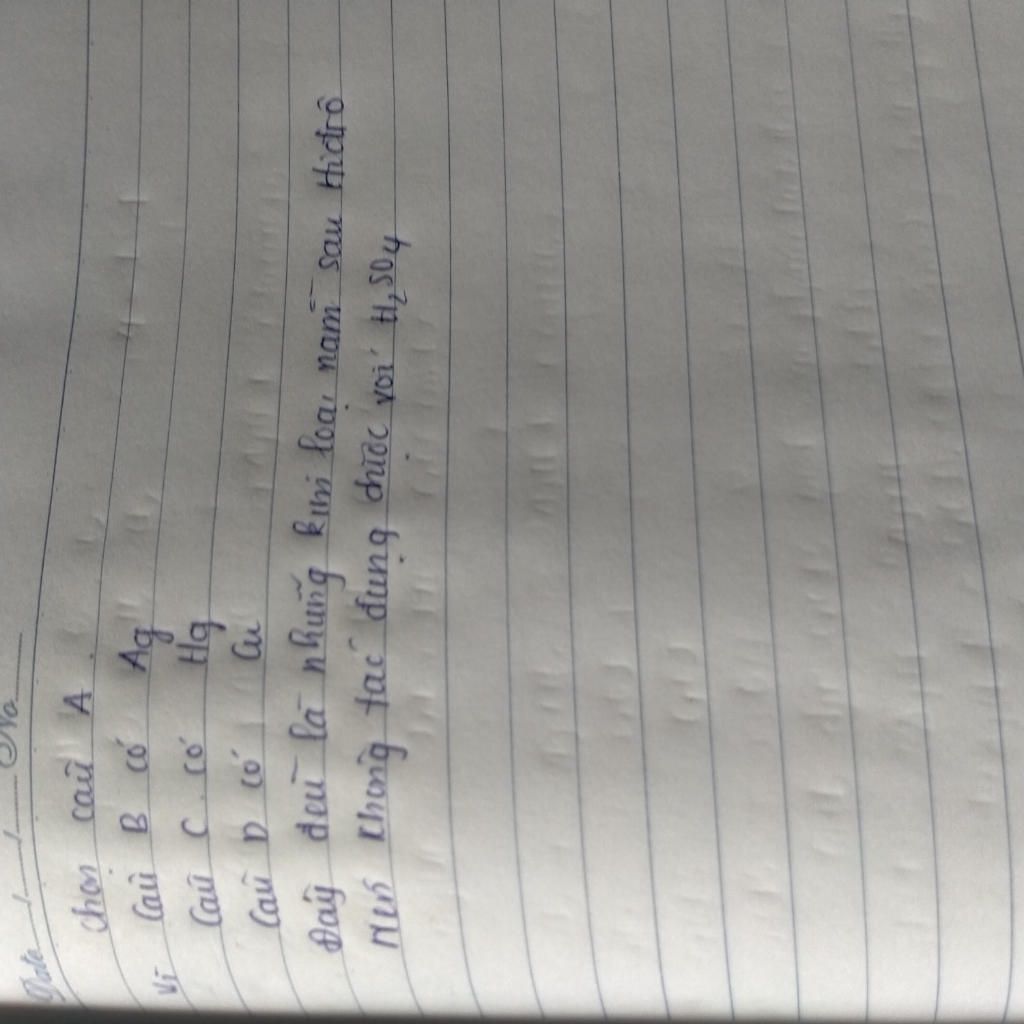 Date ___/___/___ No.___
chọn câu A
Vì Câu B có Ag
Câu C có Hg
Câu D có Cu
Đây đều là những kim loại nằm sau Hidrô
Nên không tác dụng được với H₂SO₄